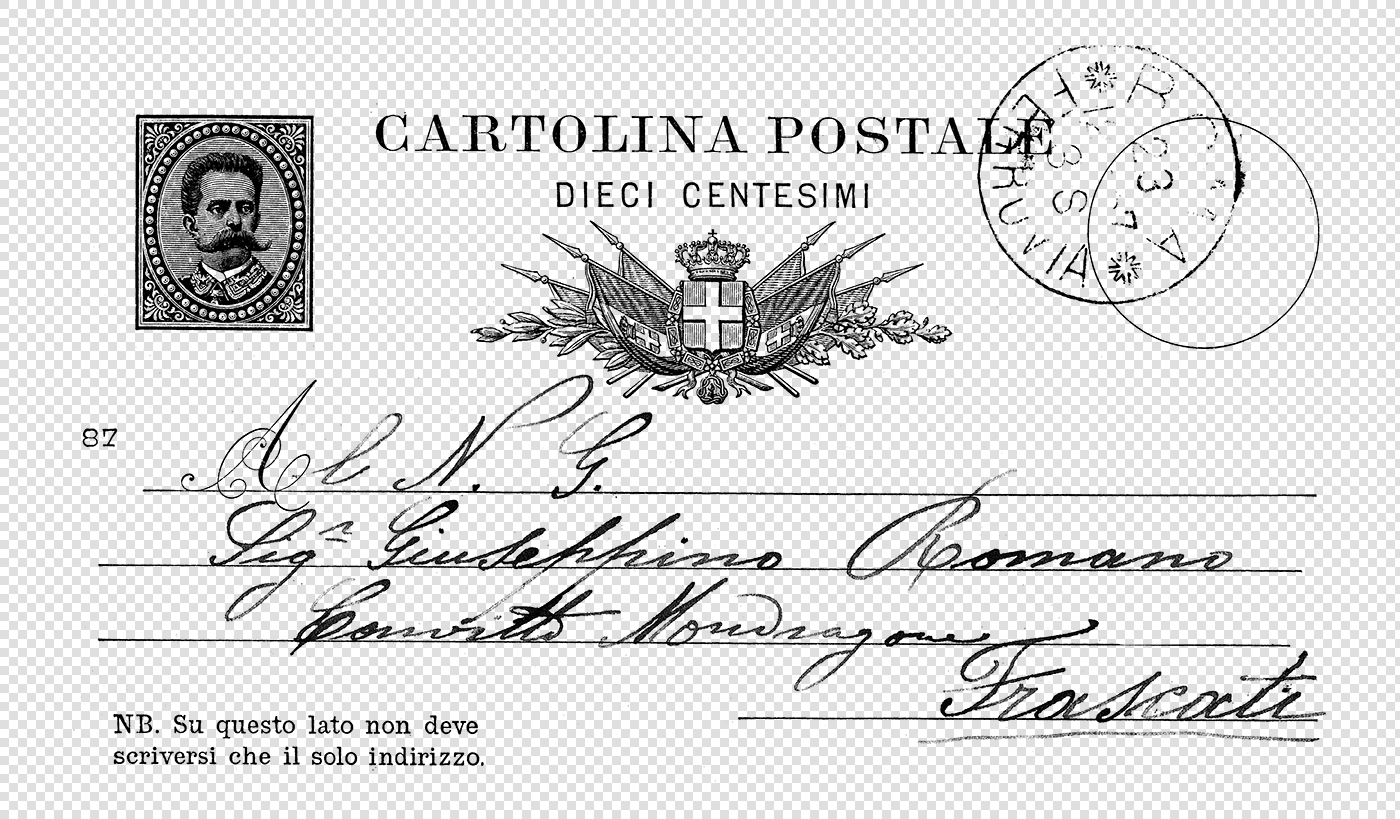 CARTOLINA POSTALE
DIECI CENTESIMI
FERROVIA
23 7
87
Al N. G.
Sigr Giuseppino Romano
Convitto Mondragone
Frascati
NB. Su questo lato non deve
scriversi che il solo indirizzo.